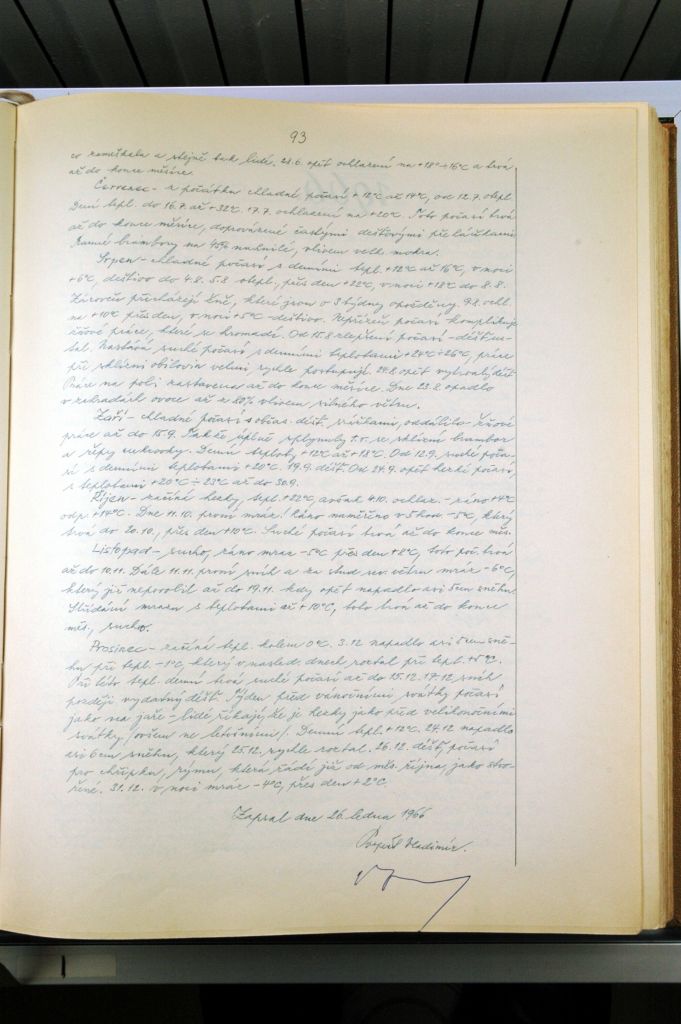 93
co zameškala a stejně tak lidé. 28.6. opět ochlazení na +18°÷16°C a trvá
až do konce měsíce.
Červenec – z počátku chladné počasí +12°C až 14°C, od 12.7. otepl.
Denní tepl. do 16.7. až +32°C. 17.7. ochlazení na +20°C. Toto počasí trvá
až do konce měsíce, doprovázené častými dešťovými přeháňkami.
Ranné brambory na 40% nahnilé, vlivem velk. mokra.
Srpen – chladné počasí s denními tepl. +12°C až 16°C, v noci
+6°C, deštivo do 4.8. 5.8. otepl., přes den +22°C, v noci +18°C do 8.8.
Zároveň přicházejí žně, které jsou o 3 týdny opožděny. 9.8. ochl.
na +10°C přes den, v noci +5°C – deštivo. Nepřízeň počasí komplikuje
žňové práce, které se hromadí. Od 15.8. zlepšení počasí – déšť us-
tal. Nastává suché počasí s denními teplotami +24°C÷26°C, práce
při sklizni obilovin velmi rychle postupují. 24.8. opět vytrvalý déšť.
Práce na poli zastavena až do konce měsíce. Dne 23.8. opadlo
v zahradách ovoce až z 80% vlivem silného větru.
Září – chladné počasí s občas. dešť. srážkami, oddálilo žňové
práce až do 15.9. Takže úplně splynuly t.r. se sklizní brambor
a řepy cukrovky. Denní teploty +12°C až +18°C. Od 12.9. suché poča-
sí s denními teplotami +20°C. 19.9. déšť. Od 24.9. opět hezké počasí,
s teplotami +20°C ÷ 23°C až do 30.9.
Říjen – začíná hezky, tepl. +22°C, avšak 4.10. ochlaz. – ráno +4°C
odp. +14°C. Dne 11.10. první mráz! Ráno naměřeno v 5 hod. -5°C, který
trvá do 20.10., přes den +10°C. Suché počasí trvá až do konce měs.
Listopad – sucho, ráno mráz -5°C přes den +8°C, toto poč. trvá
až do 10.11. Dále 11.11. první sníh a za stud. sev. větru mráz -6°C,
který již nepovolil až do 19.11. kdy opět napadlo asi 5cm sněhu.
Střídání mrazu s teplotami až +10°C, toto trvá až do konce
měs., sucho.
Prosinec – začíná tepl. kolem 0°C. 3.12. napadlo asi 5cm sně-
hu při tepl. -1°C, který v násled. dnech roztál při tepl. +5°C.
Při této tepl. denní trvá suché počasí až do 15.12. 17.12. sníh
později vydatný déšť. Týden před vánočními svátky počasí
jako na jaře – lidé říkají, že je hezky jako před velikonočními
svátky /ovšem ne letošními/. Denní tepl. +12°C. 24.12. napadlo
asi 6cm sněhu, který 25.12. rychle roztál. 26.12. déšť, počasí
pro chřipku, rýmu, která řádí již od měs. října, jako stvo-
řené. 31.12. v noci mráz -4°C, přes den +2°C.
Zapsal dne 26. ledna 1966
Vladimír.